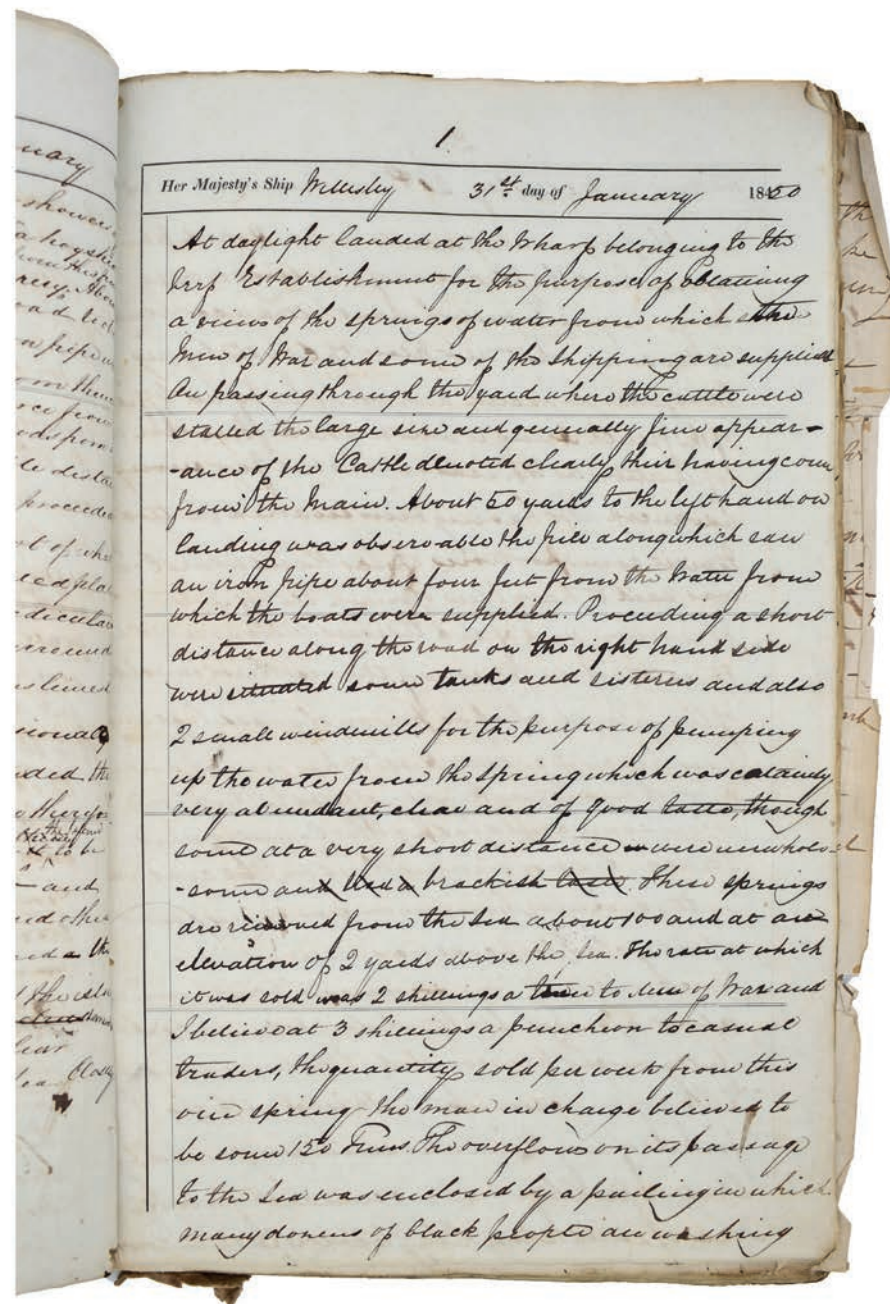 uary
1.
Her Majesty's Ship Wellesley 31st day of January 1850
showers
At daylight landed at the Wharf belonging to the
Establishment for the purpose of obtaining
a view of the springs of water from which the
Men of War and some of the Shipping are supplied
On passing through the yard where the cattle were
stalled the large size and generally fine appear-
-ance of the Cattle denoted clearly their having come
from the Main. About 50 yards to the left hand on
landing was observeable the pier along which ran
an iron pipe about four feet from the Water from
which the boats were supplied. Proceeding a short
distance along the road on the right hand side
were situated some tanks and sisterns and also
2 small windmills for the purpose of pumping
up the water from the Spring which was certainly
very abundant, clear and of good taste, though
some at a very short distance were unwhole-
-some and had a brackish taste. These springs
are removed from the Sea about 100 and at an
elevation of 2 yards above the Sea. The rate at which
it was sold was 2 shillings a tun to Men of War and
I believe at 3 shillings a puncheon to casual
traders, the quantity sold per week from this
one spring the man in charge believed to
be some 150 Tuns. The overflow on its passage
to the Sea was enclosed by a paling in which
many dozens of black people are washing